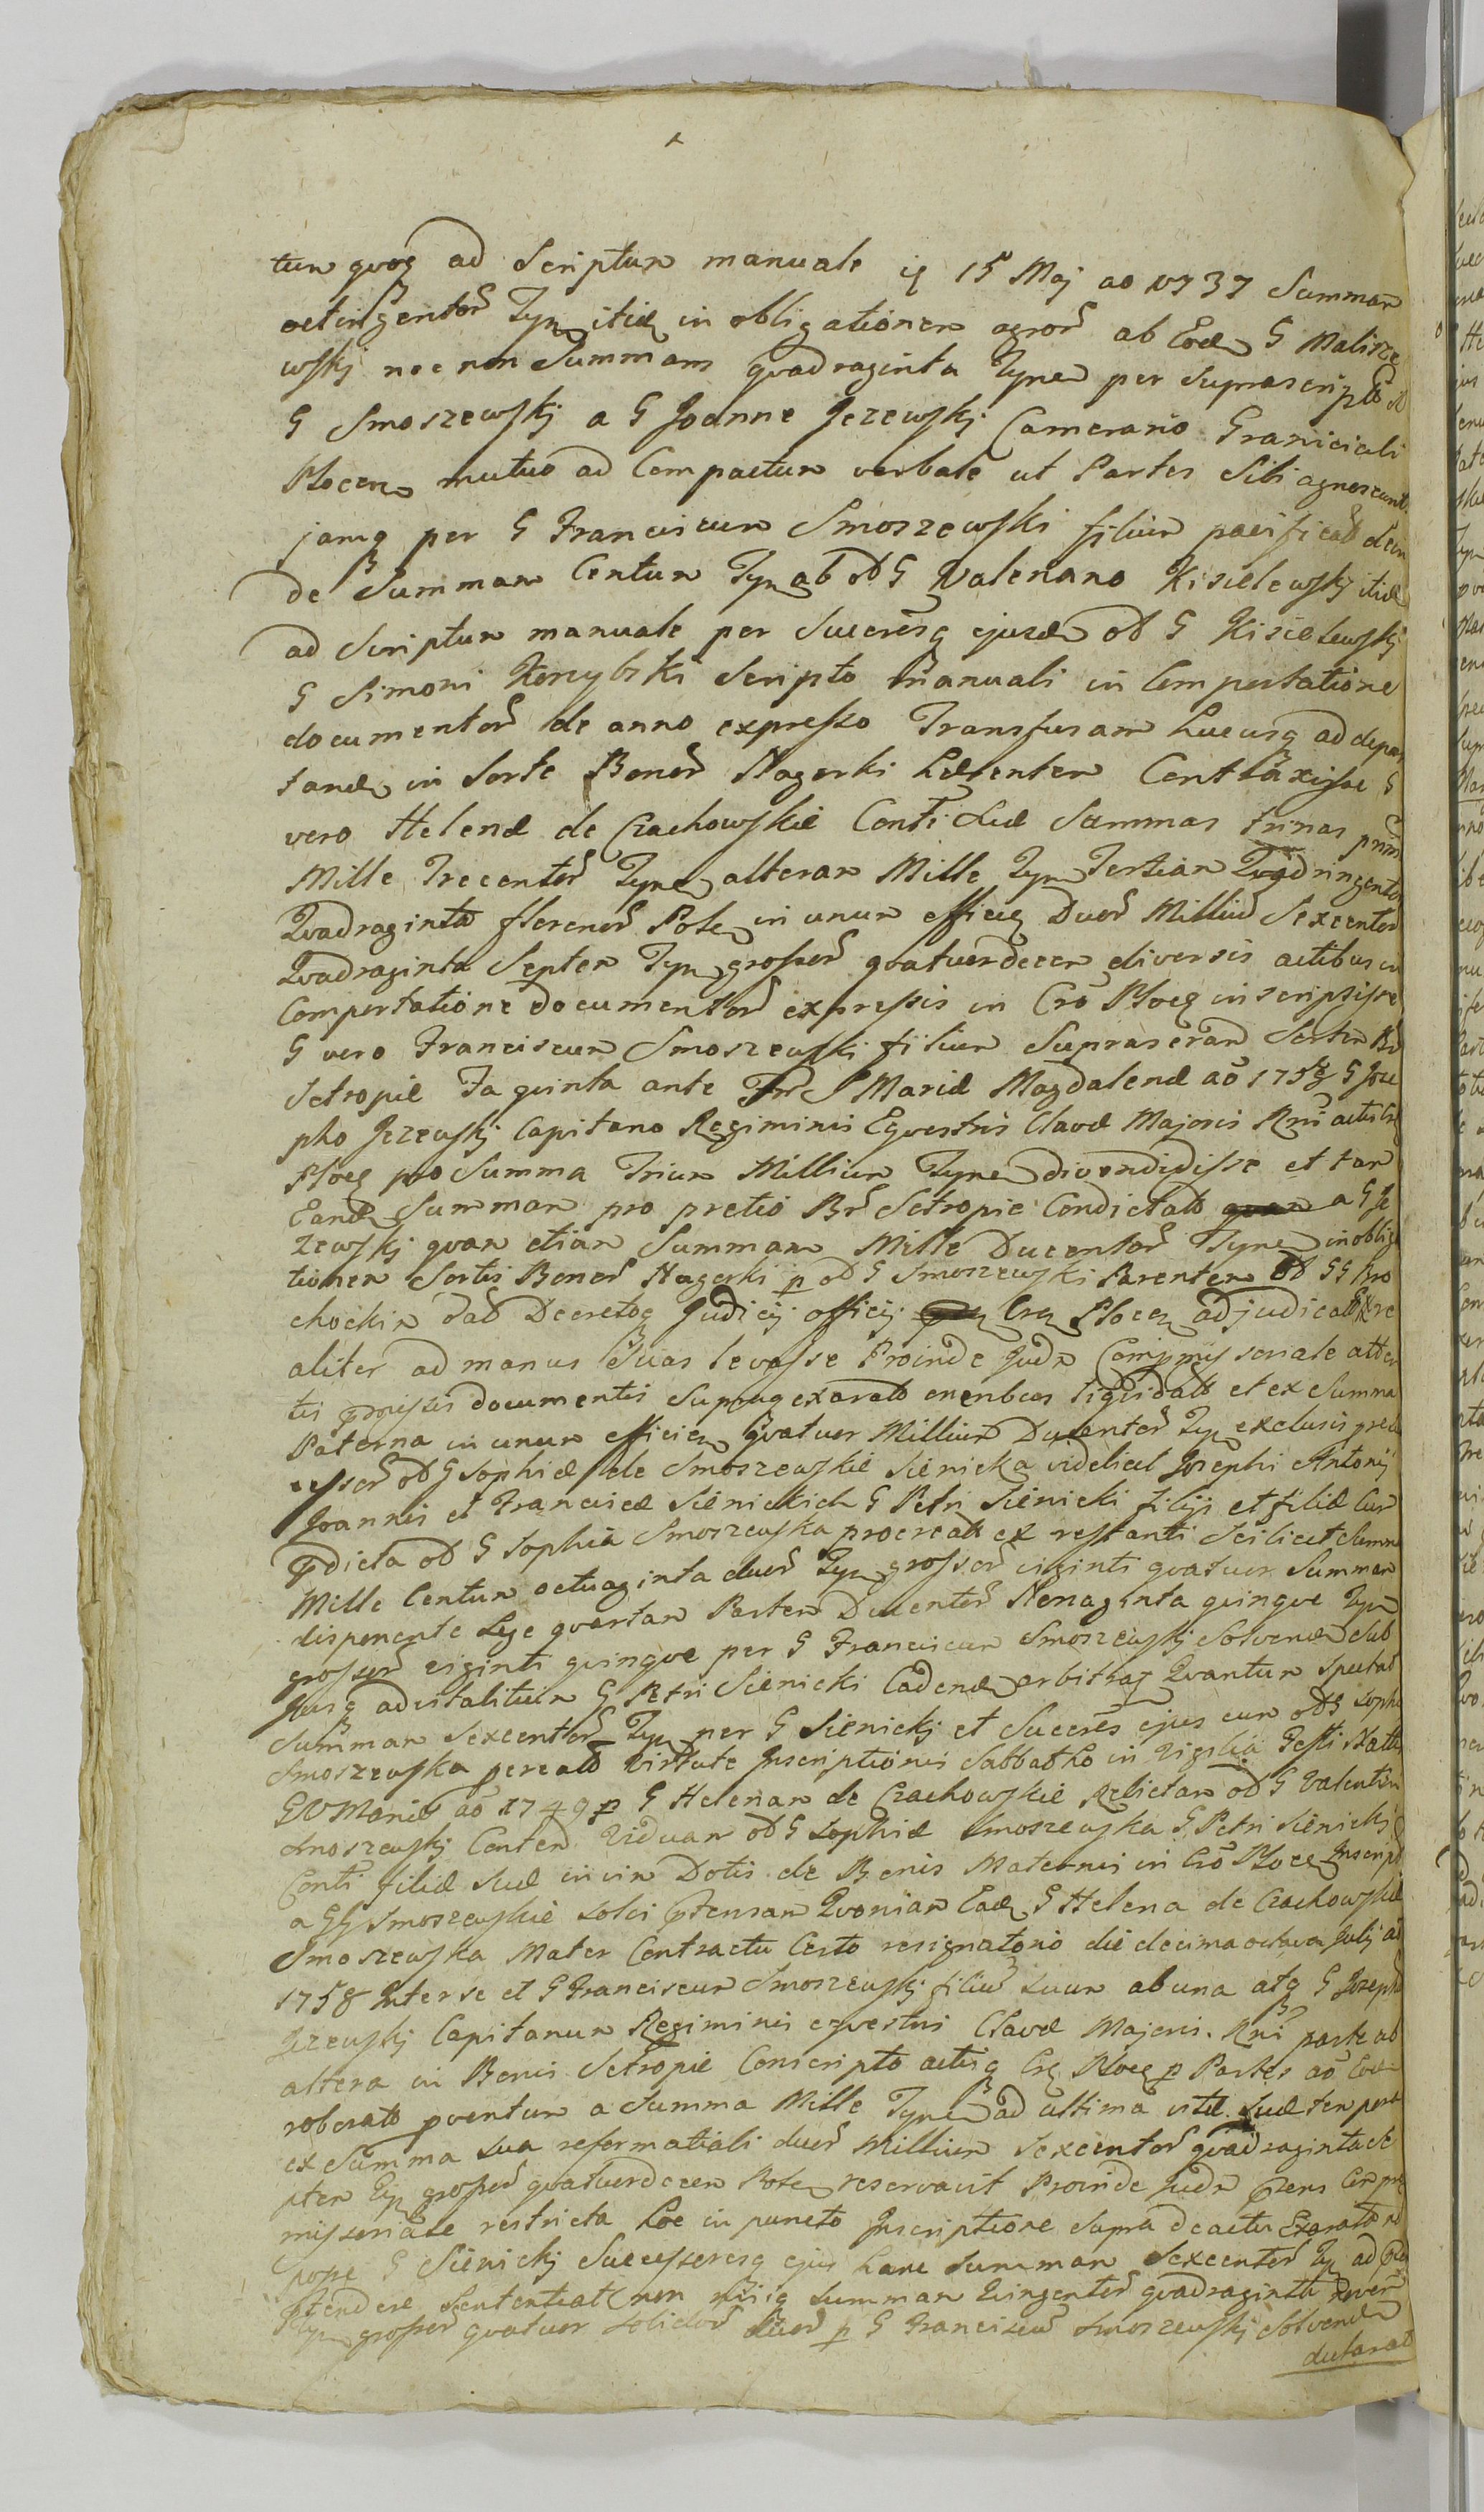 tum quoq ad Scriptum manuale iq 15 Maj ao 1737 Summam
octingentor Tyn itid in obligationem agror ab Eod G Malisze
wskj nec non Summam quadraginta Tyne per suprascriptu
G Smoszewskj a G Joanne Jezewskj Camerario Graniciali
Plocen mutuo ad Compactum verbale ut Partes Sibi agnoscunt
jamq per G Franciscum Smoszewski filium pacificat dein
de Summam Centum Tyn ab od G Valeriano Kisielewskj itid
ad Scriptum manuale per Succeresq ejusd od G Kisielewskj
G Simoni Korzybski Scripto manuali in Comportatione
documentor de anno expresso Transfusam hucusq ad depor
tand in Sorte Bonor Nagorki haerentem Contraxisse G
vero Helenae de Czachowskie Conti suae Summas trinas prim
Mille Trecentor Tyne alteram Mille Tyn Tertiam Quadringentor
Quadraginta florenor Pole in unum efficien Duor Milliu Sexcentor
Quadraginta Septem Tyn grossor quatuordecem diversis actibus in
Comportatione documentor expressis in Cro Ploc inscripsisse
G vero Franciscum Smoszewski filium Supraseram Sortem Br
Setropie Fa quinta ante Fm S Mariae Magdalenae ao 1758 G Jose
pho Jezewskj Capitano Regiminis Equestris Clavae Majoris Rni actis Cr
Ploc pro Summa Trium Millium Tyne divendidisse et tam
Eand Summam pro pretio Br Setropie Condictato a G Je
zewskj quam etiam Summam Mille Ducentor Tyne in obliga
tionem Sortis Bonor Nagorki p od G Smoszewski Parentem od GG Kro
chockim dat Decretoq Judicij officij Crq Plocen adjudicat re
aliter ad manus Suas levasse Proinde Judm Compmissoriale atten
tis pmissis documentis Supraq exarato
Paterna in unum efficien Quatuor Millium Ducentor Tyn exclusis prae
cessor od G Sophiae de Smoszewskie Sienicka videlicet Josephi Antonij
Joannis et Franciscae Sienickich G Petri Sienicki filijs et filiae Cum
pdicta od G Sophia Smoszewska procreat ex restanti Scilicet Summa
Mille Centum octuaginta duor Tyn grossor viginti quatuor Summam
disponente Lege quartam Partem Ducentor Nonaginta quinque Tyn
grossor viginti quinque per G Franciscum Smoszewskj Solvend Sub
Jusq advitalitium G Petri Sienicki Cadend arbitraq Quantum spectat
Summam Sexcentor Tyn per G Sienickj et Succeres ejus cum od G Soph
Smoszewska pereat virtute Inscriptionis Sabbatho in Vigilia Festi Nattis
BVMariae ao 1749 p G Helenam de Czachowskie Relictam od G Valentini
Smoszewskj Conten Viduam od G Sophiae Smoszewska G Petri Sienickj
Conti filiae Suae in vim Dotis de Bonis Maternis in Cro Ploce Inscript
a GG Smoszewskie solvi ptensam Quoniam Ead G Helena de Czachowskie
Smoszewska Mater Contractu Certo resignatorio die decima octava Julij ao
1758 Inter se et G Franciscum Smoszewskj filiu Suum ab una atq G Joseph
Jezewskj Capitanum Regiminis equestris Clavae Majoris Rni parte ab
altera in Bonis Setropie Conscripto actisq Crq Ploc p Partes ao Eod
roborato pventum a Summa Mille Tyne ad ultima vitae Suae tempora
ex Summa Sua reformatiali duor Millium Sexcentor quadraginta Se
ptem Tyn grossor quatuordecem Pole reservavit Proinde Judm pens Compro
missoriale restricta hoc in puncto Inscriptione Supra de actu Exarato
posse G Sienickj Successoresq ejus hanc Summam Sexcentor Tyn ad
ptendere Sententiat non nisi q Summam Quingentor quadraginta
Tyn grossor quatuor Solidor duor p G Franciscu Smoszewskj Solvend